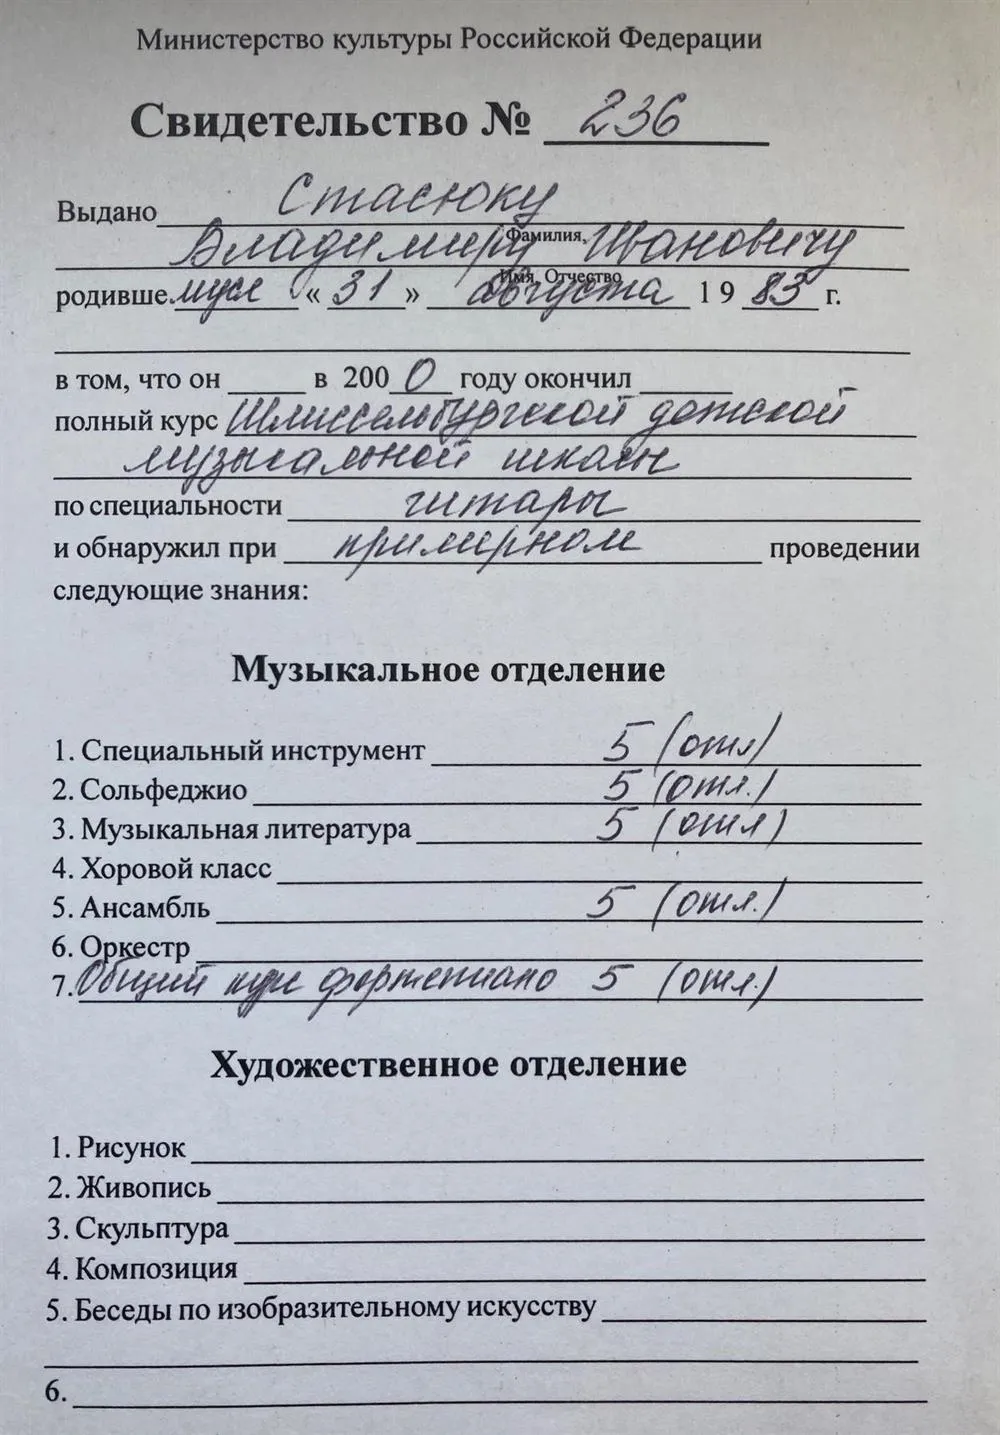 Министерство культуры Российской Федерации
Свидетельство № 236
Выдано Стасюку
Фамилия,
Владимиру Ивановичу
Имя, Отчество
родившемуся «31» августа 1983 г.
в том, что он в 2000 году окончил
полный курс Шлиссельбургской детской
музыкальной школы
по специальности гитары
и обнаружил при примерном проведении
следующие знания:
Музыкальное отделение
1. Специальный инструмент 5 (отл)
2. Сольфеджио 5 (отл.)
3. Музыкальная литература 5 (отл)
4. Хоровой класс
5. Ансамбль 5 (отл.)
6. Оркестр
7. Общий курс фортепиано 5 (отл.)
Художественное отделение
1. Рисунок
2. Живопись
3. Скульптура
4. Композиция
5. Беседы по изобразительному искусству
6.